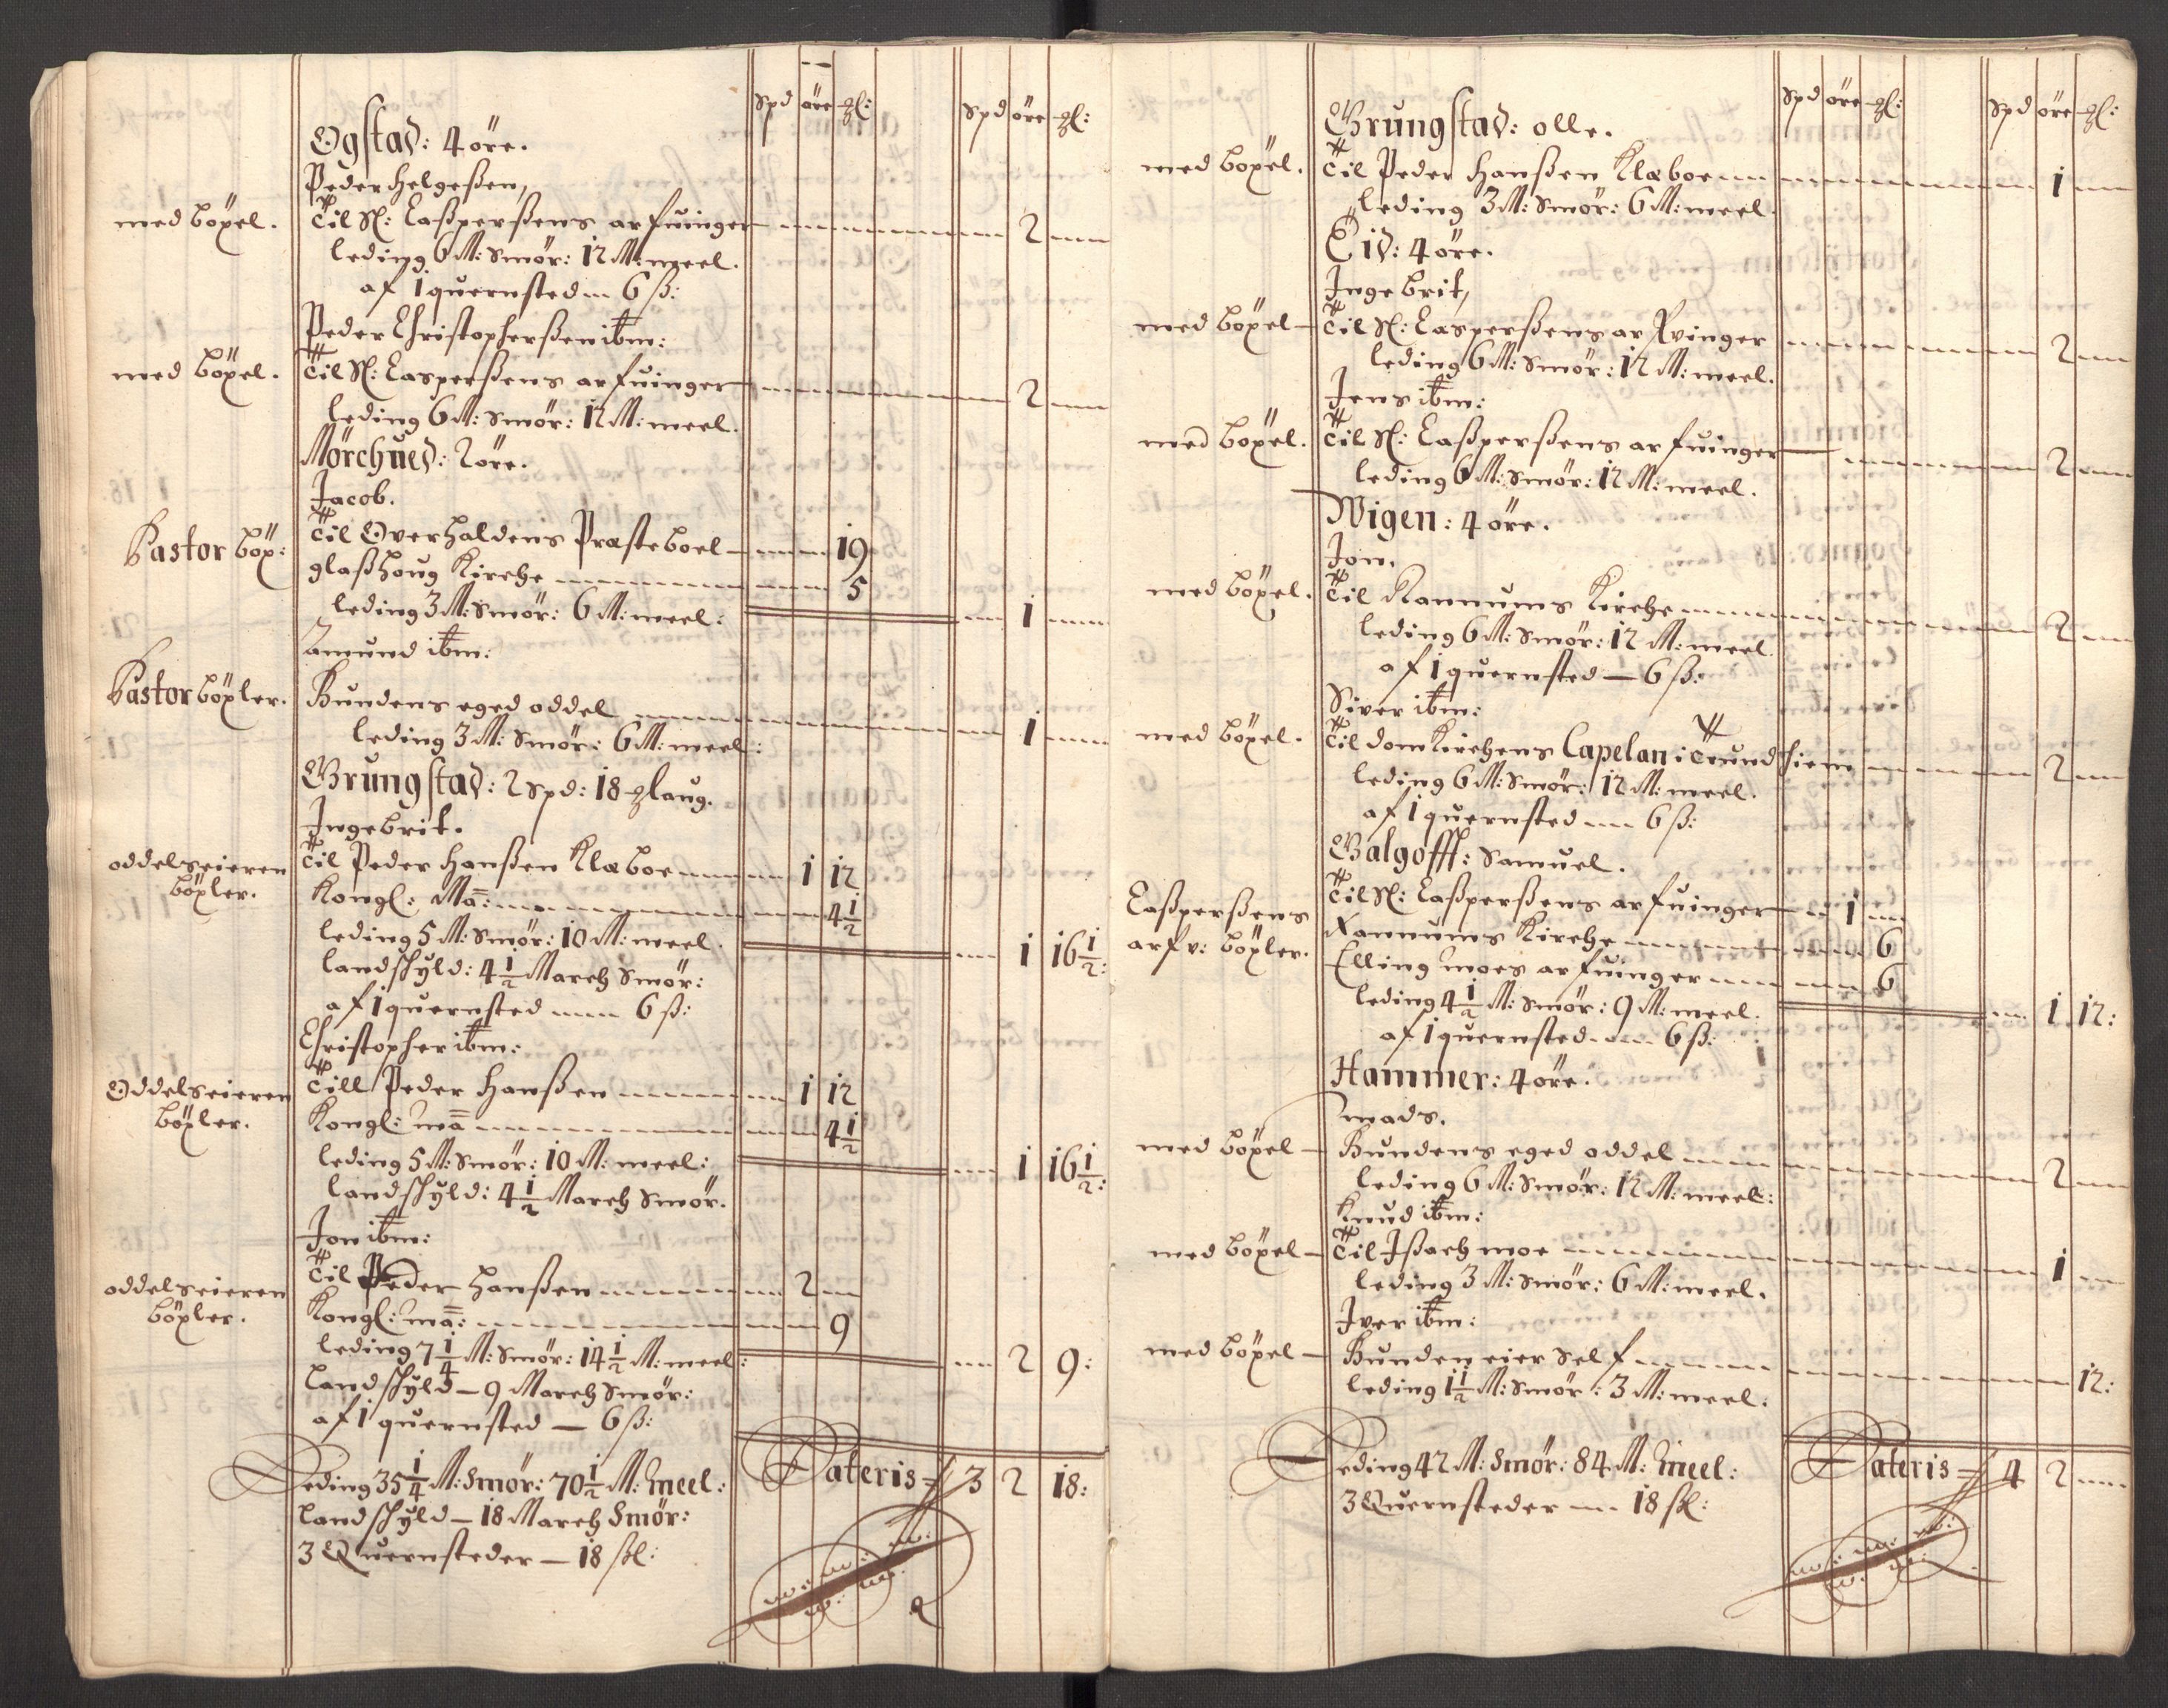 Spd öre gl: Spd öre gl:
Øgstad: 4 öre.
Peder Helgeßen,
med böxel. Til Sl: Caßperßens arfuinger 2
leding 6 M: Smör: 12 M: meel.
af 1 quernsted 6 ß:
Peder Christopherßen ibm:
med böxel. Til Sl: Casperßens arfuinger 2
leding 6 M: Smör: 12 M: meel.
Mörchued: 2 öre.
Jacob.
Pastor böx: Til Overhaldens Præsteboel 19
glaßhoug Kirche 5
leding 3 M: Smör: 6 M: meel: 1
Amund ibm:
Pastor böxler. Bundens eged oddel 1
leding 3 M: Smör: 6 M: meel:
Grungstad: 2 Spd: 18 glaug.
Ingebrit.
oddelseieren böxler. Til Peder Hanßen Klæboe 1 12
Kongl: Ma: 4 1/2
leding 5 M: Smör: 10 M: meel. 1 16 1/2:
landschyld: 4 1/2 March Smör:
af 1 quernsted 6 ß:
Christopher ibm:
Oddelseieren böxler. Till Peder Hanßen 1 12
Kongl: ma 4 1/2
leding 5 M: Smör: 10 M: meel: 1 16 1/2:
landschyld: 4 1/2 March Smör.
Jon ibm:
oddelseieren böxler. Til Peder Hanßen 2
Kongl: ma: 9
leding 7 1/4 M: Smör: 14 1/2 M: meel: 2 9:
Landschyld – 9 March Smör:
af 1 quernsted – 6 ß:
Leding 35 1/4 M: Smör: 70 1/2 M: meel: Lateris 3 2 18:
Landschyld – 18 March Smör:
3 Quernsteder – 18 ßl:
Spd öre gl: Spd öre gl:
Grungstad: olle.
med böxel. Til Peder Hanßen Klæboe 1
leding 3 M: Smör: 6 M: meel.
Eid: 4 öre.
Ingebrit,
med böxel – Til Sl: Casperßens arfvinger 2
leding 6 M: Smör: 12 M: meel.
Jens ibm:
med böxel. Til Sl: Caßperßens arfuinger 2
leding 6 M: Smör: 12 M: meel.
Wigen: 4 öre.
Jon.
med böxel. Til Rannums Kirche 2
leding 6 M: Smör: 12 M: meel.
af 1 quernsted – 6 ß:
Siver ibm:
med böxel. Til domkirchens Capelan i Trundhiem 2
leding 6 M: Smör: 12 M: meel.
af 1 quernsted 6 ß:
Galgofft: Samuel.
Caßperßens arfv: böxler. Til Sl: Caßperßens arfuinger 1
Rannums Kirche 6
Elling moes arfuinger 6
leding 4 1/2 M: Smör: 9 M: meel. 1 12:
af 1 quernsted 6 ß:
Hammer: 4 öre.
mads.
med böxel – Bundens eged oddel 2
leding 6 M: Smör: 12 M: meel:
Knud ibm:
med böxel – Til Jßach moe 1
leding 3 M: Smör: 6 M: meel.
Iver ibm:
med böxel – Bunden eier Self 12:
leding 1 1/2 M: Smör: 3 M: meel.
Leding 42 M: Smör: 84 M: meel: Lateris 4 2
3 Quernsteder 18 ßl: